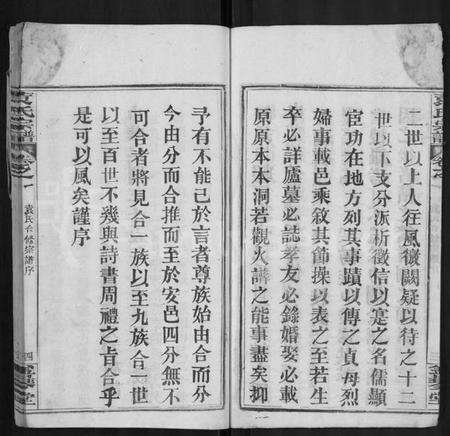 二世以上人往風微闕疑以待之十二
世以下支分派析徵信以寔之名儒顯
宦功在地方列其事蹟以傳之貞母烈
婦事載邑乘敘其節操以表之至若生
卒必詳廬墓必誌孝友必錄婚娶必載
原原本本洞若觀火譜之能事盡矣抑
予有不能已於言者尊族始由合而分
今由分而合推而至於安邑四分無不
可合者將見合一族以至九族合一世
以至百世不幾與詩書周禮之旨合乎
是可以風矣謹序
袁氏合修宗譜序
四